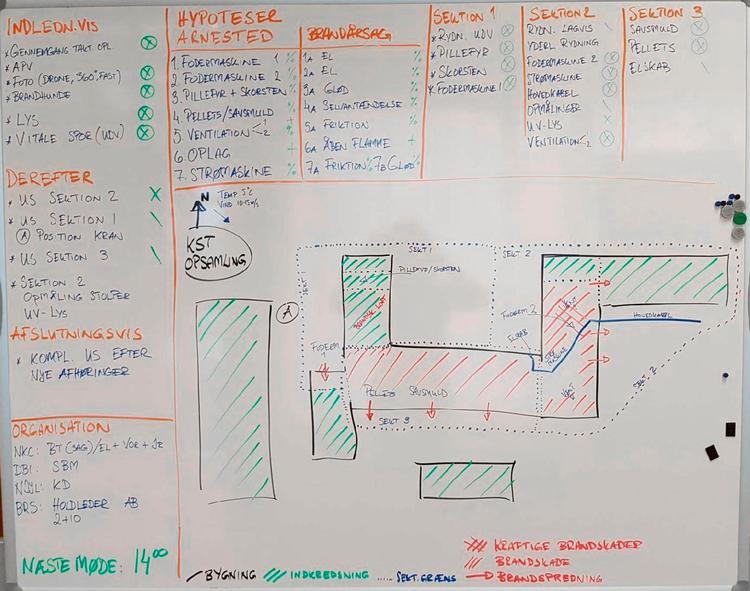 INDLEDN.VIS
* GENNEMGANG TAKT. OPL.
* APV
* FOTO (DRONE, 360°, FAST)
* BRANDHUNDE
* LYS
* VITALE SPOR (UDV)
DEREFTER
* US SEKTION 2
* US SEKTION 1
(A) POSITION KRAN
* US SEKTION 3
* SEKTION 2
OPMÅLING STOLPER
UV-LYS
AFSLUTNINGSVIS
* KOMPL. US EFTER
NYE AFHØRINGER
ORGANISATION
NKC: BT (SAG)/EL + VOR + JE
DBI: SBM
NDJL: KD
BRS: HOLDLEDER AB
2+10
NÆSTE MØDE: 14⁰⁰
HYPOTESER
ARNESTED
1. FODERMASKINE 1 %
2. FODERMASKINE 2 %
3. PILLEFYR + SKORSTEN %
4. PELLETS/SAVSMULD %
5 VENTILATION 1 2 +
6. OPLAG +
7. STRØMASKINE %
BRANDÅRSAG
1A EL %
2A EL %
3A GLØD %
4A SELVANTÆNDELSE %
5A FRIKTION %
6A ÅBEN FLAMME +
7A FRIKTION % 7B GLØD %
SEKTION 1
* RYDN. UDV
* PILLEFYR
* SKORSTEN
* FODERMASKINE 1
SEKTION 2
RYDN. LAGVIS
YDERL. RYDNING
FODERMASKINE 2
STRØMASKINE
HOVEDKABEL
OPMÅLINGER
UV-LYS
VENTILATION 2
SEKTION 3
SAVSMULD
PELLETS
ELSKAB
N
TEMP 5°C
VIND 10-15 m/s
KST
OPSAMLING
A
SEKT 1
SEKT 2
SEKT 1
PILLEFYR/SKORSTEN
FODERM 2
HOVEDKABEL
ELSKAB
FODERM
1
VENT
PELLETS SAVSMULD
SEKT 2
SEKT 3
BYGNING
INDKREDSNING
SEKT. GRÆNS
KRAFTIGE BRANDSKADER
BRANDSKADE
BRANDSPREDNING